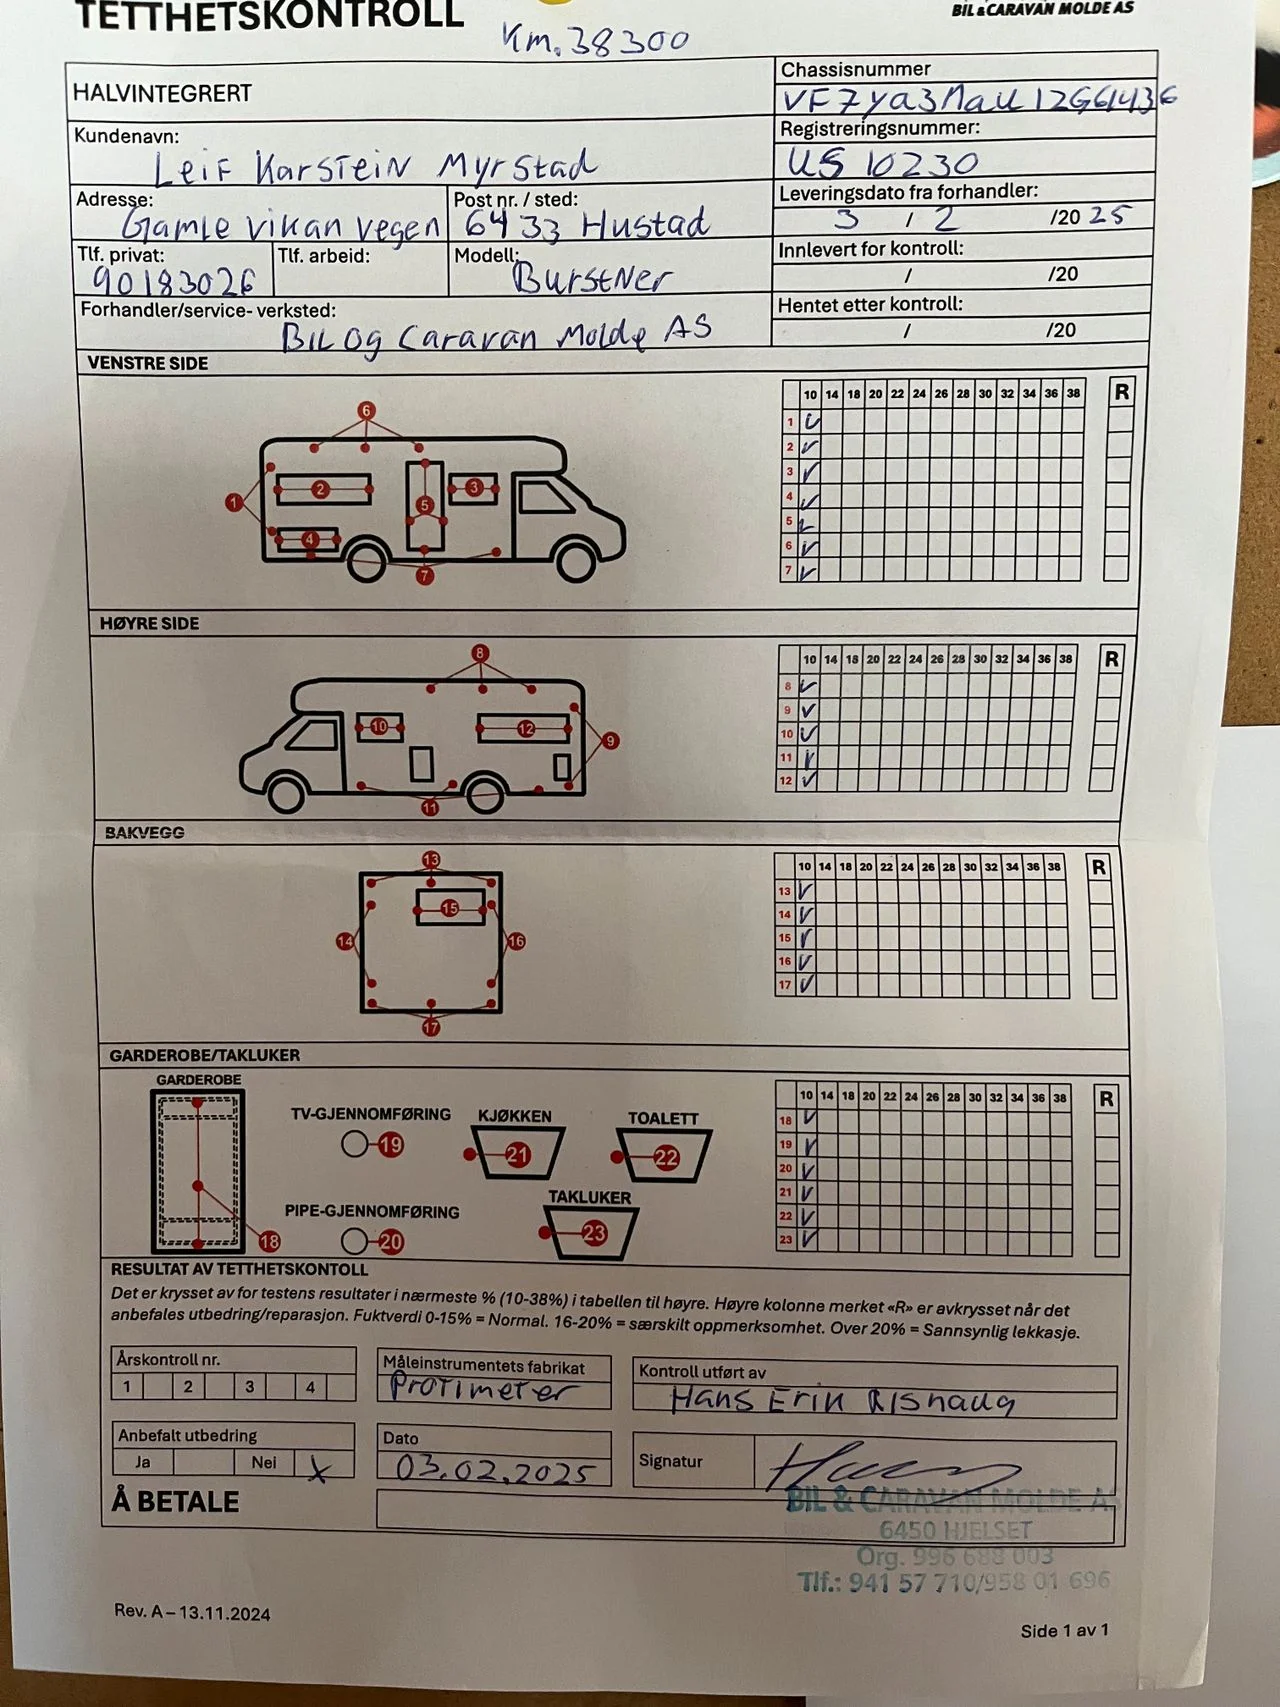 TETTHETSKONTROLL
BIL & CARAVAN MOLDE AS
Km. 38300
HALVINTEGRERT
Chassisnummer
Kundenavn:
Leif Karstein Myrstad
Registreringsnummer:
US 10230
Adresse:
Gamle vikan vegen
Post nr. / sted:
6433 Hustad
Leveringsdato fra forhandler:
3 / 2 /20 25
Tlf. privat:
90183026
Tlf. arbeid:
Modell:
BurstNer
Innlevert for kontroll:
/ /20
Forhandler/service- verksted:
BIL og Caravan Molde AS
Hentet etter kontroll:
/ /20
VENSTRE SIDE
6
1 2 3
4 5
7
10 14 18 20 22 24 26 28 30 32 34 36 38 R
1
2
3
4
5
6
7
HØYRE SIDE
8
10 12 9
11
10 14 18 20 22 24 26 28 30 32 34 36 38 R
8
9
10
11
12
BAKVEGG
13
15
14 16
17
10 14 18 20 22 24 26 28 30 32 34 36 38 R
13
14
15
16
17
GARDEROBE/TAKLUKER
GARDEROBE
18
TV-GJENNOMFØRING
19
KJØKKEN
21
TOALETT
22
PIPE-GJENNOMFØRING
20
TAKLUKER
23
10 14 18 20 22 24 26 28 30 32 34 36 38 R
18
19
20
21
22
23
RESULTAT AV TETTHETSKONTOLL
Det er krysset av for testens resultater i nærmeste % (10-38%) i tabellen til høyre. Høyre kolonne merket «R» er avkrysset når det
anbefales utbedring/reparasjon. Fuktverdi 0-15% = Normal. 16-20% = særskilt oppmerksomhet. Over 20% = Sannsynlig lekkasje.
Årskontroll nr.
1 2 3 4
Måleinstrumentets fabrikat
Protimeter
Kontroll utført av
Hans Erik
Anbefalt utbedring
Ja Nei X
Dato
03.02.2025
Signatur
Å BETALE
BIL & CARAVAN MOLDE AS
6450 HJELSET
Org. 996 688 003
Tlf.: 941 57 710/958 01 696
Rev. A – 13.11.2024
Side 1 av 1